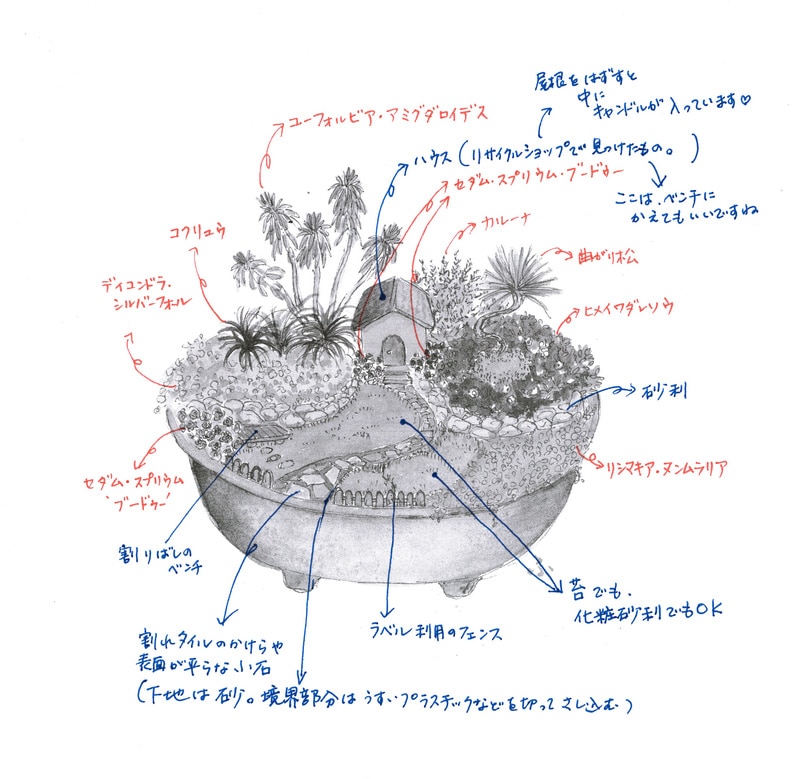 屋根をはずすと
中に
キャンドルが入っています♡
ユーフォルビア・アミグダロイデス
ハウス(リサイクルショップで見つけたもの。)
セダム・スプリウム・ブードゥー
ここは、ベンチに
かえてもいいですね
カルーナ
コクリュウ
曲がり松
ディコンドラ・
シルバーフォール
ヒメイワダレソウ
砂利
セダム・スプリウム
'ブードゥー'
リシマキア・ヌンムラリア
割りばしの
ベンチ
苔でも、
化粧砂利でもOK
ラベル利用のフェンス
割れタイルのかけらや
表面が平らな小石
(下地は砂。境界部分はうすいプラスチックなどを切ってさし込む)